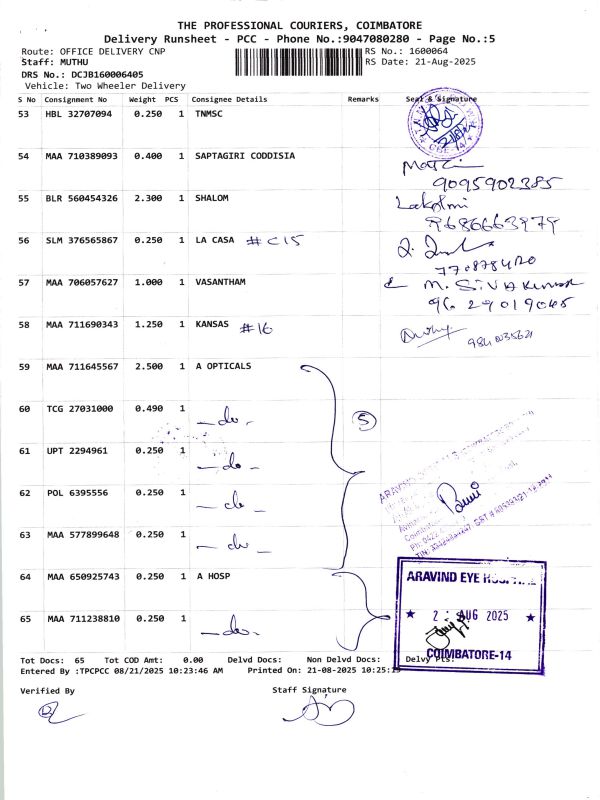 THE PROFESSIONAL COURIERS, COIMBATORE
Delivery Runsheet - PCC - Phone No.:9047080280 - Page No.:5
Route: OFFICE DELIVERY CNP RS No.: 1600064
Staff: MUTHU RS Date: 21-Aug-2025
DRS No.: DCJB160006405
Vehicle: Two Wheeler Delivery
S No Consignment No Weight PCS Consignee Details Remarks Seal & Signature
53 HBL 32707094 0.250 1 TNMSC
54 MAA 710389093 0.400 1 SAPTAGIRI CODDISIA
9095902385
55 BLR 560454326 2.300 1 SHALOM Lakshmi
9686663979
56 SLM 376565867 0.250 1 LA CASA #C15
57 MAA 706057627 1.000 1 VASANTHAM M. SIVA Kumar
96 29019045
58 MAA 711690343 1.250 1 KANSAS #16
9840035621
59 MAA 711645567 2.500 1 A OPTICALS
60 TCG 27031000 0.490 1 -do-
5
61 UPT 2294961 0.250 1 -do-
62 POL 6395556 0.250 1 -do-
63 MAA 577899648 0.250 1 -do-
64 MAA 650925743 0.250 1 A HOSP
ARAVIND EYE HOSPITAL
AUG 2025
65 MAA 711238810 0.250 1 -do-
COIMBATORE-14
Tot Docs: 65 Tot COD Amt: 0.00 Delvd Docs: Non Delvd Docs: Delvy Pts:
Entered By :TPCPCC 08/21/2025 10:23:46 AM Printed On: 21-08-2025 10:25:
Verified By Staff Signature